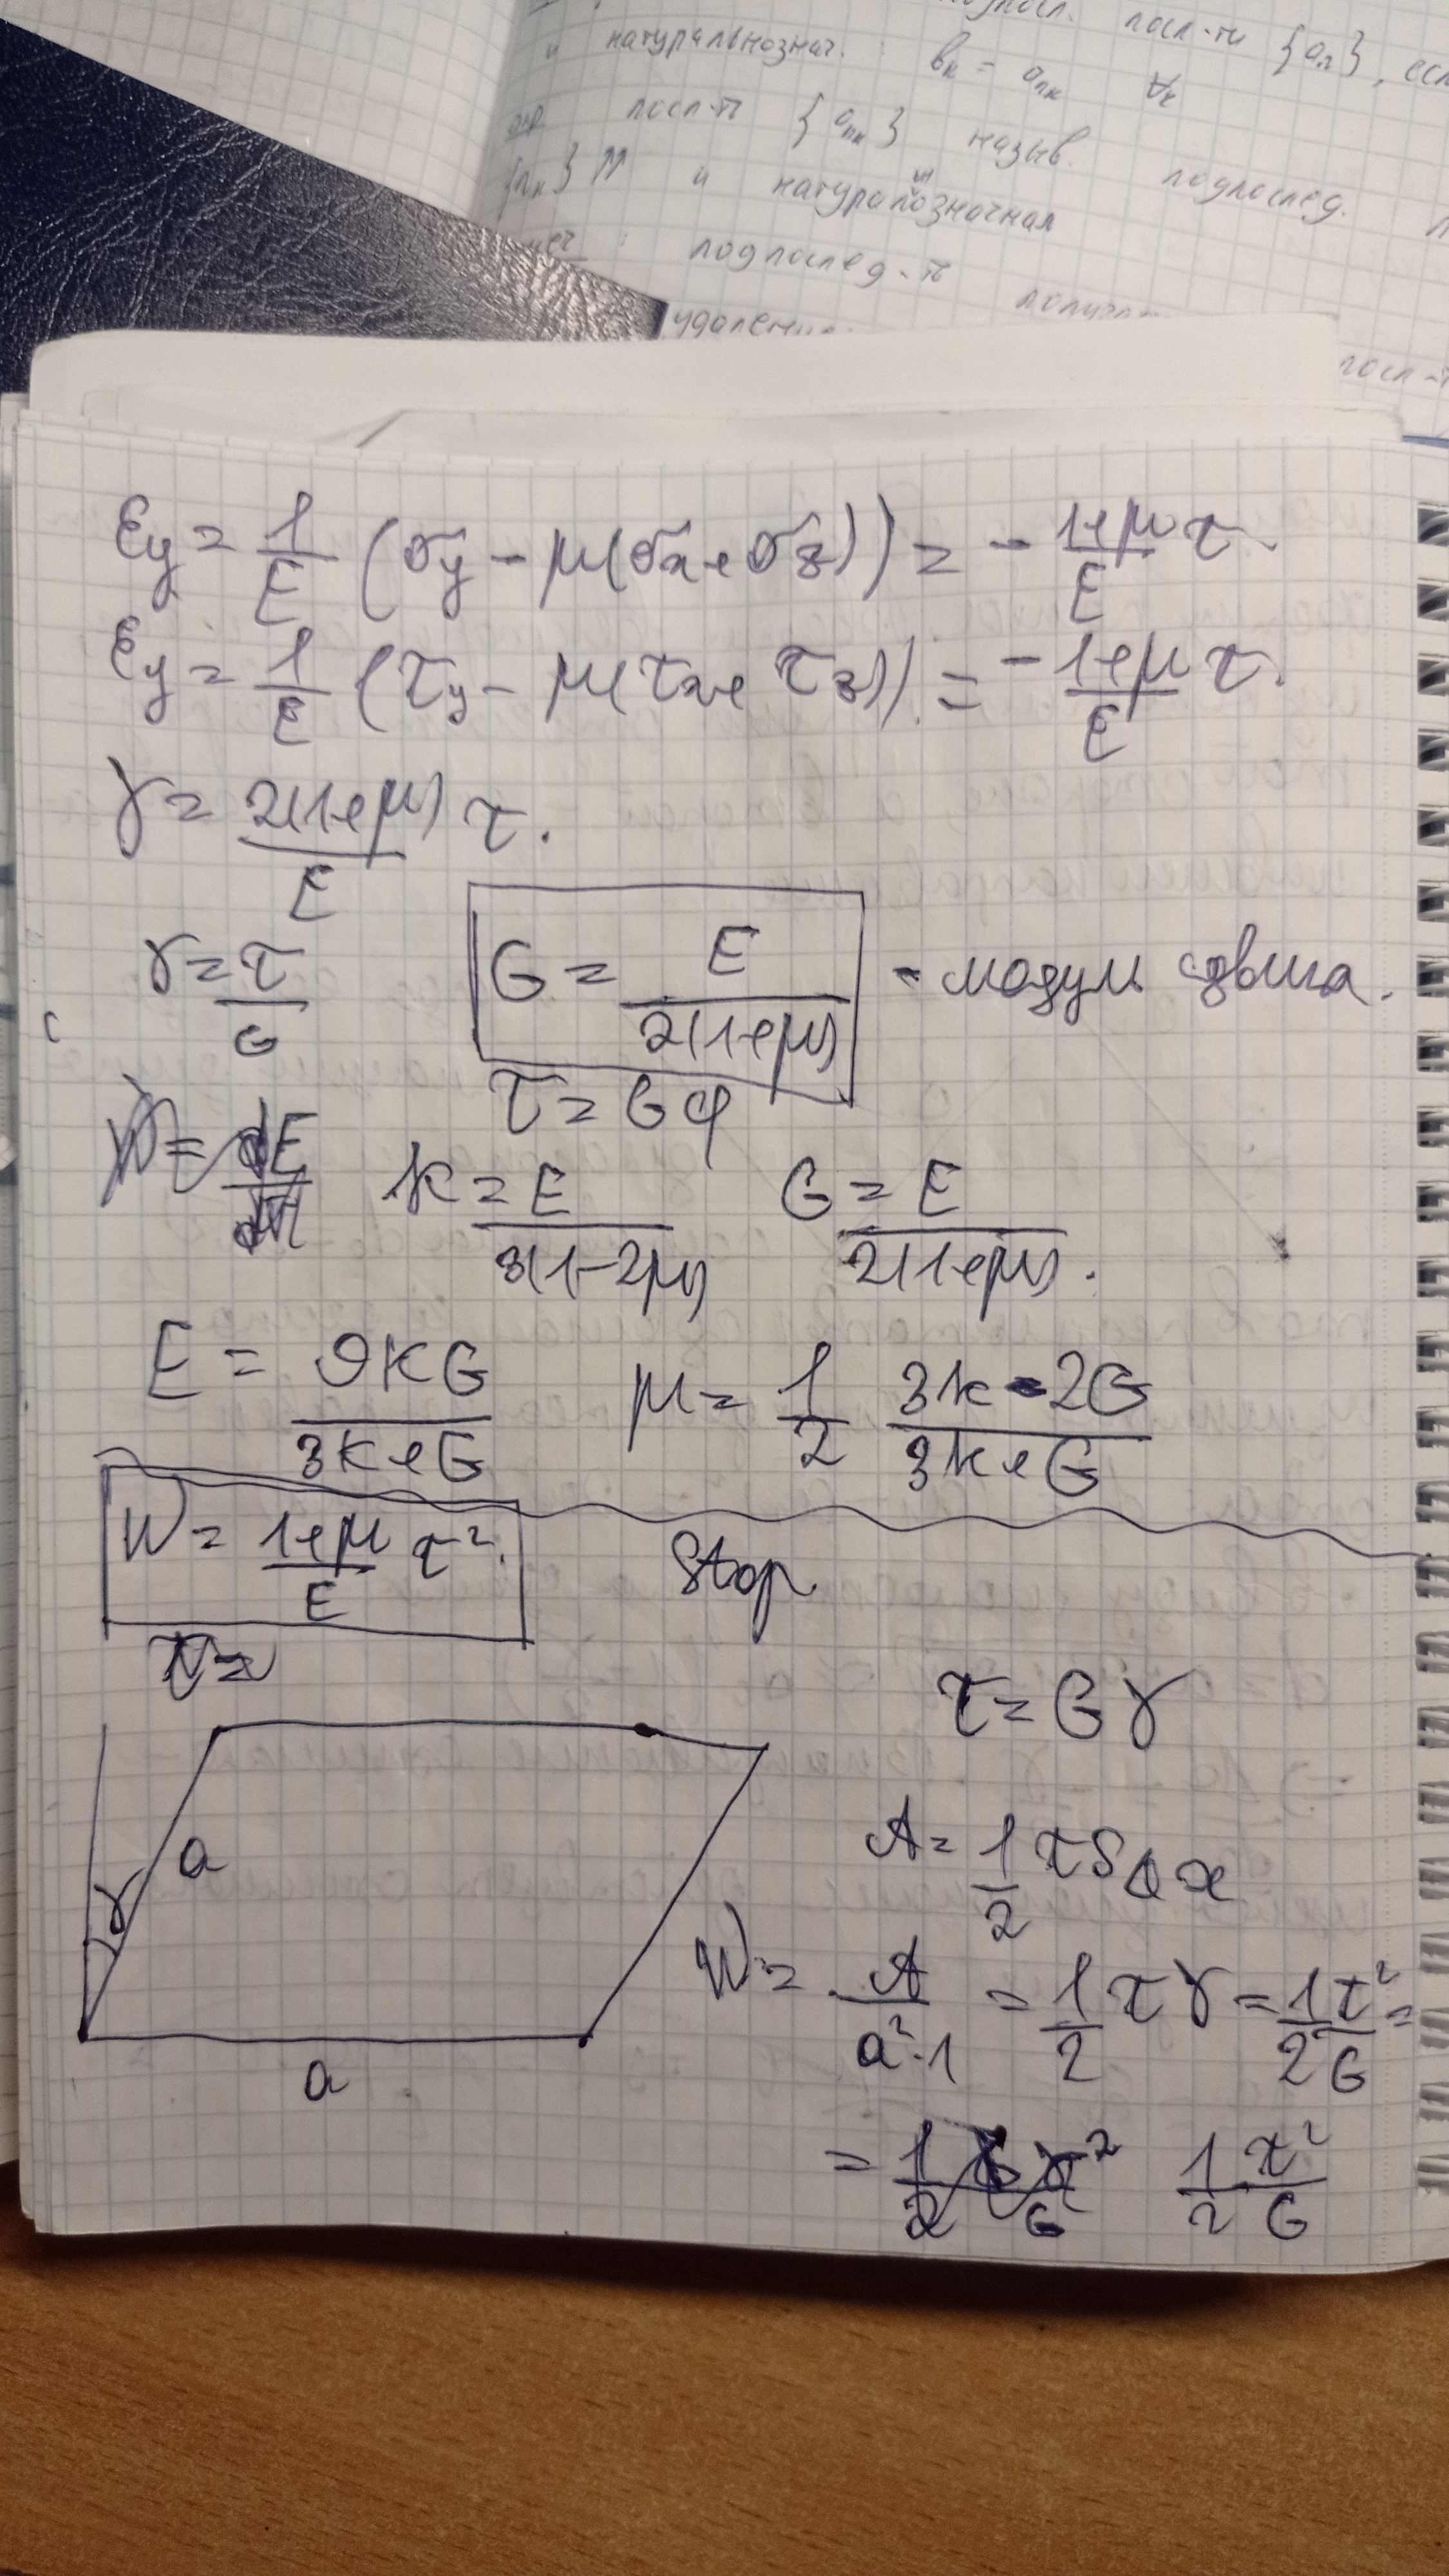 подпосл. посл-ти {aₙ}, если
и натуральнознач. : bₖ = aₙₖ ∀ₖ
опр посл-ть {aₙₖ} назыв. подпослед.
{nₖ} ⇈ и натуральнозначная
подпослед-ть
удалени
посл-т
εy = 1/E (σy - μ(σx + σz)) = - (1+μ)/E τ
εy = 1/E (τy - μ(τx + τz)) = - (1+μ)/E τ.
γ = 2(1+μ)/E τ.
γ = τ/G G = E/2(1+μ) - модуль сдвига.
τ = Gφ
k = E/3(1-2μ) G = E/2(1+μ).
E = 9kG/3k+G μ = 1/2 3k-2G/3k+G
W = (1+μ)/E τ². Stop.
τ =
τ = Gγ
a
γ
A = 1/2 τSΔx
W = A/a²·1 = 1/2 τγ = 1/2 τ²/G =
a
= 1/2 τ²/G